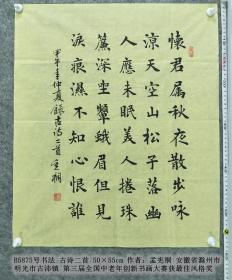 懷君屬秋夜散步咏
涼天空山松子落幽
人應未眠美人捲珠
簾深坐顰蛾眉但見
淚痕濕不知心恨誰
甲午年仲夏錄古诗二首宪桐
B5875号书法 古诗二首 50×55cm 作者：孟宪桐 安徽省滁州市
明光市古沛镇 第三届全国中老年创新书画大赛获最佳风格奖